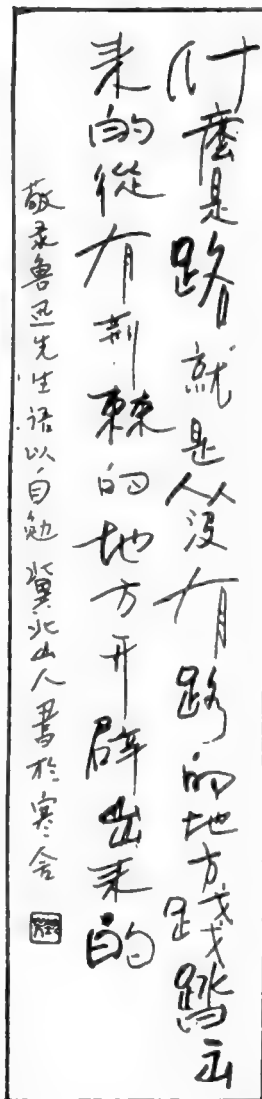 什麼是路就是从没有路的地方踐踏出
来的從有荆棘的地方开辟出来的
敬录鲁迅先生语以自勉 冀北山人書於寒舍